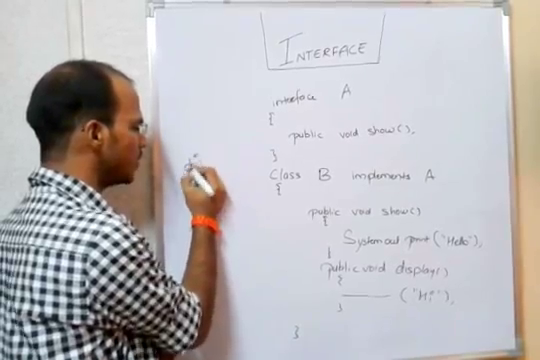 INTERFACE
interface A
{
public void show();
}
Class B implements A
{
public void show()
{
System out print ("Hello");
}
public void display()
{
("Hi");
}
}